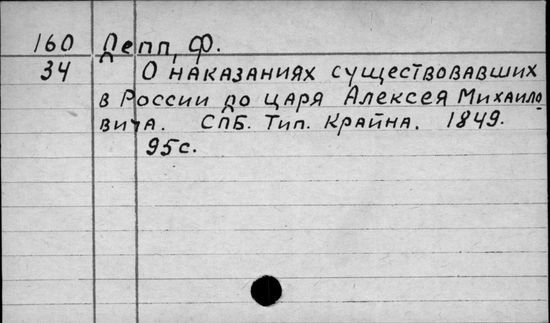 160 Депп, Ф.
34 О наказаниях существовавших
в России до царя Алексея Михаило
вича. СПБ. Тип. Крайна. 1849.
95с.